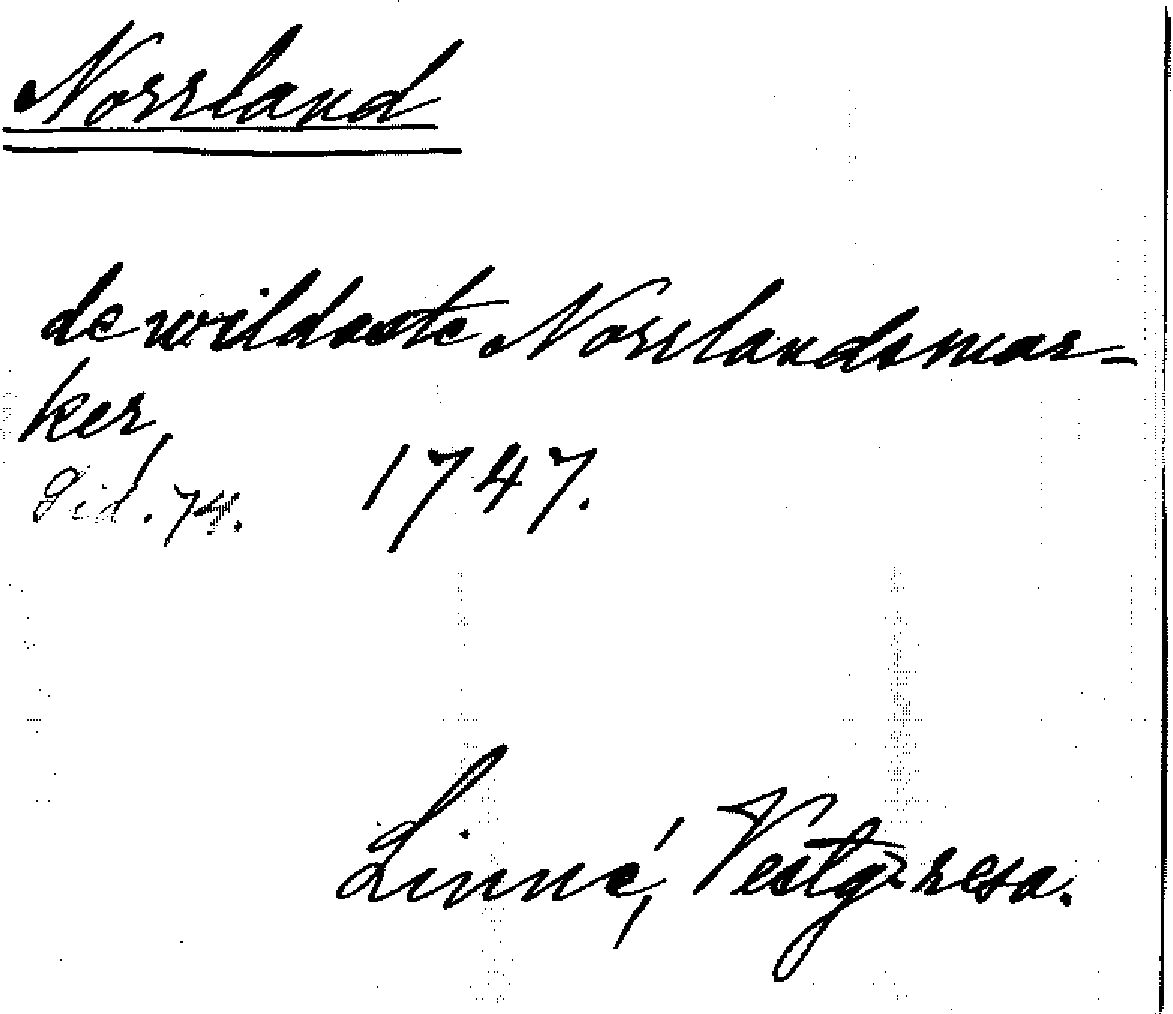 Norrland
de wildaste Norrlandsmar-
ker,
Sid. 74. 1747.
Linné, Vestg. resa.